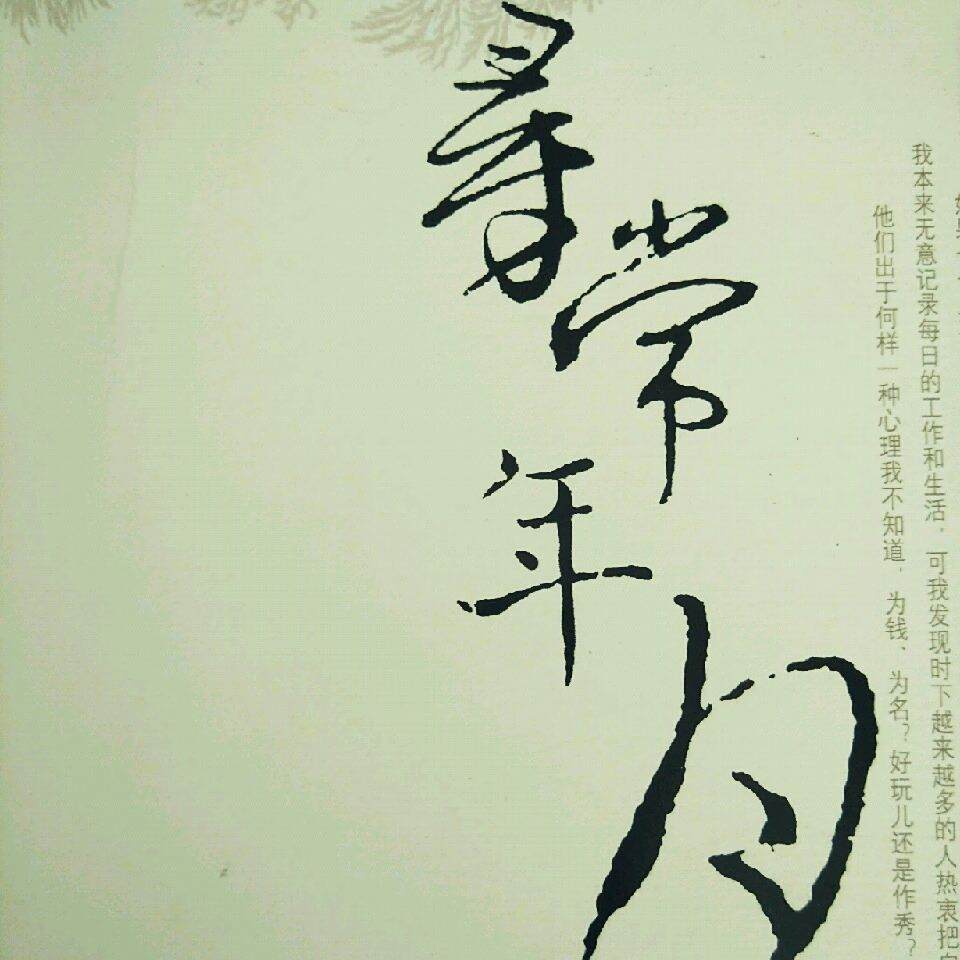 寻常年月
我本来无意记录每日的工作和生活，可我发现时下越来越多的人热衷把
他们出于何样一种心理我不知道，为钱、为名？好玩儿还是作秀？